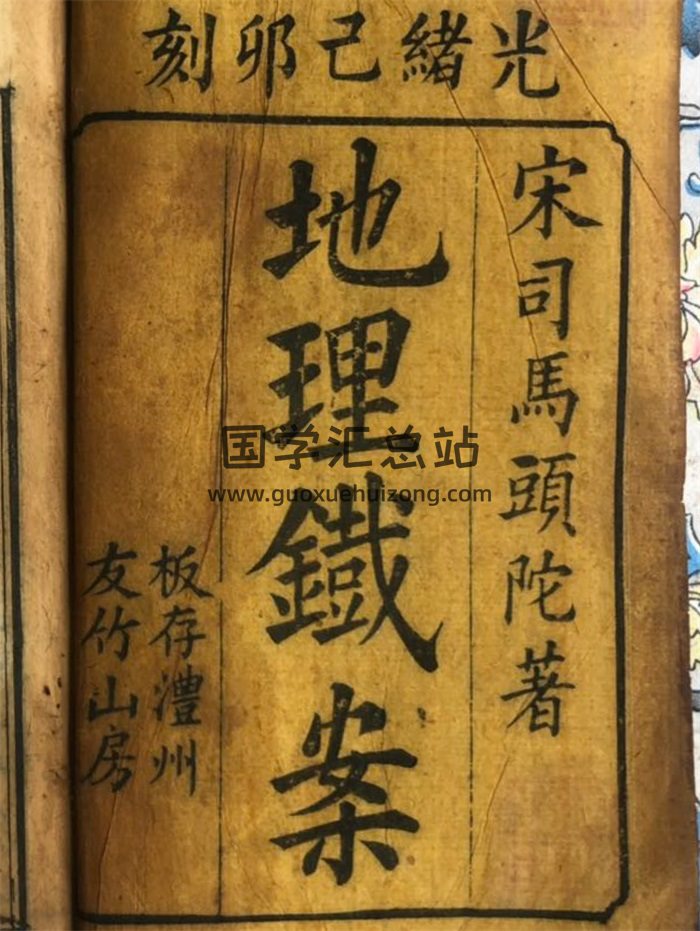 光緒己卯刻
宋司馬頭陀著
地理鐵案
板存澧州
友竹山房
国学汇总站
www.guoxuehuizong.com